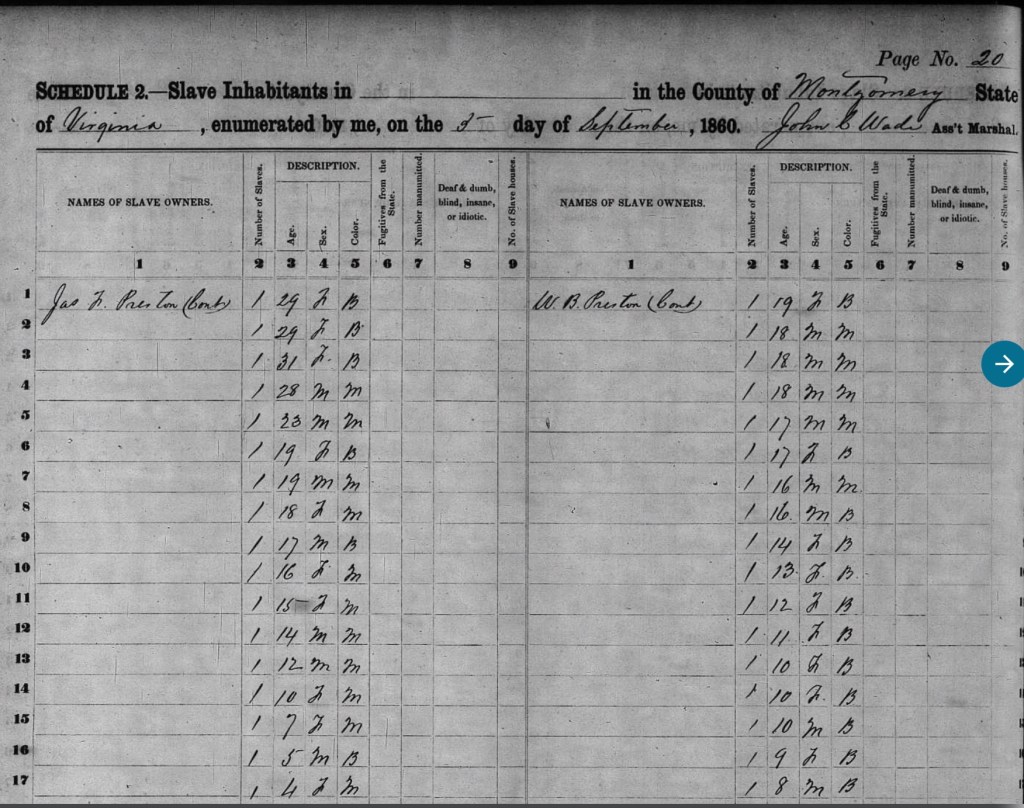 Page No. 20
SCHEDULE 2.—Slave Inhabitants in in the County of Montgomery State
of Virginia , enumerated by me, on the 5 day of September , 1860. John C Wade Ass't Marshal.
NAMES OF SLAVE OWNERS. Number of Slaves. DESCRIPTION. Age. Sex. Color. Fugitives from the State. Number manumitted. Deaf & dumb, blind, insane, or idiotic. No. of Slave houses. NAMES OF SLAVE OWNERS. Number of Slaves. DESCRIPTION. Age. Sex. Color. Fugitives from the State. Number manumitted. Deaf & dumb, blind, insane, or idiotic. No. of Slave houses.
1 2 3 4 5 6 7 8 9 1 2 3 4 5 6 7 8 9
1 Jas F. Preston (Cont) 1 29 F B W. B. Preston (Cont) 1 19 F B
2 1 29 F B 1 18 M M
3 1 31 F B 1 18 M M
4 1 28 M M 1 18 M M
5 1 23 M M 1 17 M M
6 1 19 F B 1 17 F B
7 1 19 M M 1 16 M M
8 1 18 F M 1 16 M B
9 1 17 M B 1 14 F B
10 1 16 F M 1 13 F B
11 1 15 F M 1 12 F B
12 1 14 M M 1 11 F B
13 1 12 M M 1 10 F B
14 1 10 F M 1 10 F B
15 1 7 F M 1 10 M B
16 1 5 M B 1 9 F B
17 1 4 F M 1 8 M B